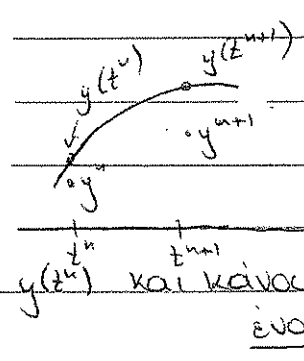 y(t^{n+1})
y(t^n)
y^{n+1}
y^n
t^n t^{n+1}
y(t^n) και κάνου
ένα